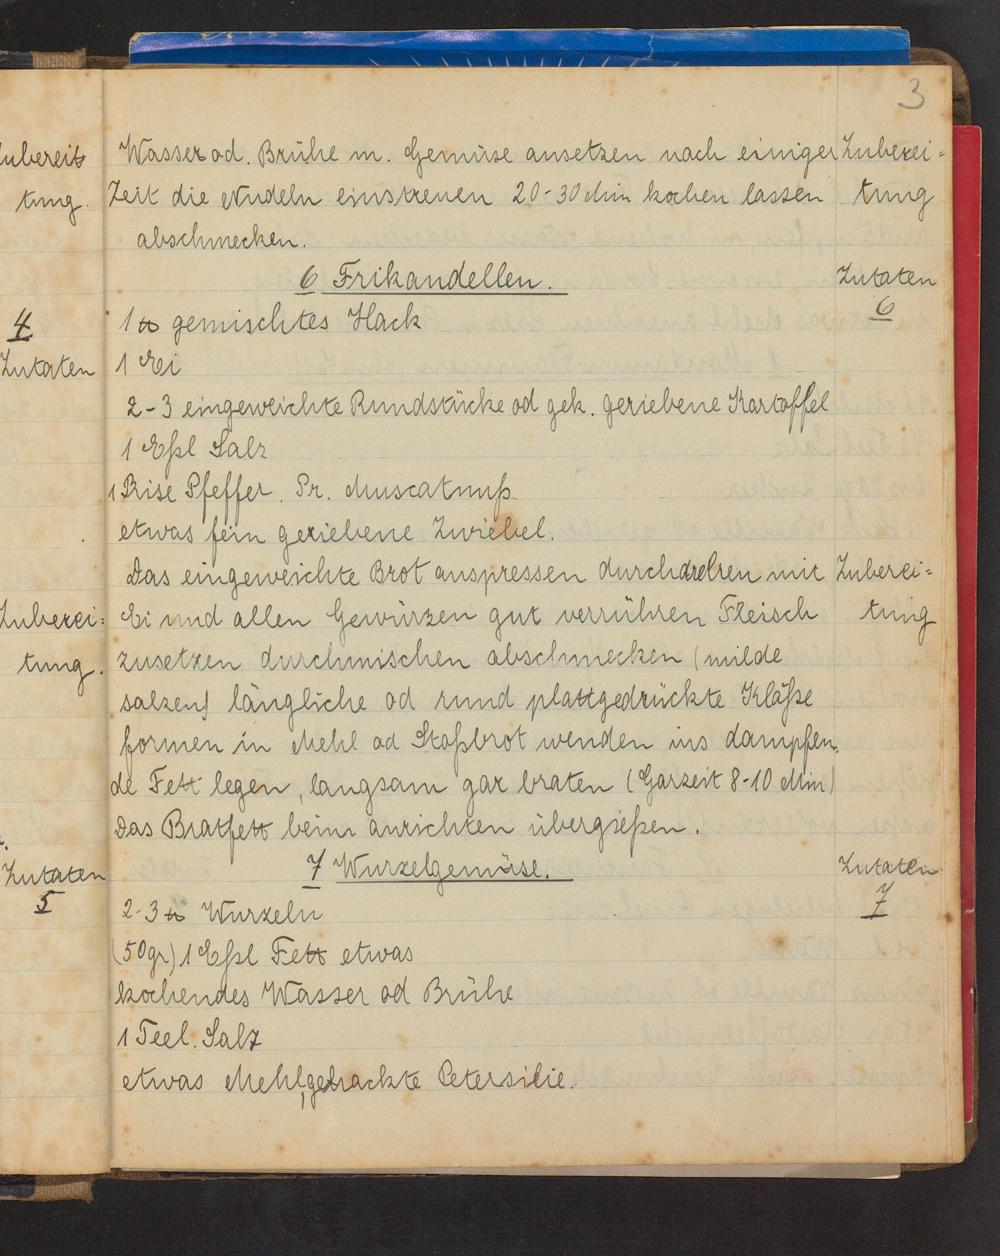 3
Wasser od. Brühe m. Gemüse ansetzen nach einiger Zuberei=
Zeit die Nudeln einstreuen 20-30 Min kochen lassen tung
abschmecken.
6 Frikandellen. Zutaten
6
1 ℔ gemischtes Hack
1 Ei
2-3 eingeweichte Rundstücke od gek. geriebene Kartoffel
1 Eßl Salz
1 Prise Pfeffer. Pr. Muscatnuß
etwas fein geriebene Zwiebel.
Das eingeweichte Brot auspressen durchdrehen mit Zuberei=
Ei und allen Gewürzen gut verrühren Fleisch tung
zusetzen durchmischen abschmecken (milde
salzen) längliche od rund plattgedrückte Klöße
formen in Mehl od Stoßbrot wenden ins dampfen.
de Fett legen, langsam gar braten (Garzeit 8-10 Min)
Das Bratfett beim anrichten übergießen.
7 Wurzelgemüse. Zutaten
7
2-3 ℔ Wurzeln
(50gr) 1 Eßl Fett etwas
kochendes Wasser od Brühe
1 Teel. Salz
etwas Mehl, gehackte Petersilie.
zubereit
tung.
4
Zutaten
Zuberei=
tung.
Zutaten
5